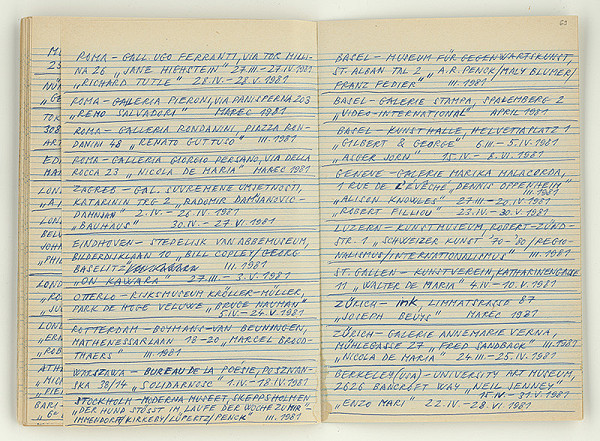 ROMA – GALL. UGO FERRANTI, VIA TOR MILLI-
NA 26 „JANE HIGHSTEIN" 27.III.–27.IV.1981
„RICHARD TUTLE" 28.IV.–28.V.1981
ROMA – GALLERIA PIERONI, VIA PANISPERNA 203
„REMO SALVADORI" MAREC 1981
ROMA – GALLERIA RONDANINI, PIAZZA RON-
DANINI 48 „RENATO GUTTUSO" III.1981
ROMA – GALLERIA GIORGIO PERSANO, VIA DELLA
ROCCA 23 „NICOLA DE MARIA" MAREC 1981
ZAGREB – GAL. SUVREMENE UMJETNOSTI,
KATARININ TRG 2 „RADOMIR DAMJANOVIC-
DAMNJAN" 2.IV.–26.IV.1981
„BAUHAUS" 30.IV.–27.VI.1981
EINDHOVEN – STEDELIJK VAN ABBEMUSEUM,
BILDERDIJKLAAN 10 „BILL COPLEY/GEORG
BASELITZ III.1981
„ON KAWARA" 27.III.–3.V.1981
OTTERLO – RIJKSMUSEUM KRÖLLER-MÜLLER,
PARK DE HOGE VELUWE „BRUCE NAUMAN"
5.IV.–24.V.1981
ROTTERDAM – BOYMANS-VAN BEUNINGEN,
MATHENESSARLAAN 18–20 „MARCEL BROOD-
THAERS" III.1981
WARSZAWA – BUREAU DE LA POÉSIE, POZNAN-
SKA 38/14 „SOLIDARNOSC" 1.IV.–18.IV.1981
STOCKHOLM – MODERNA MUSEET, SKEPPSHOLMEN
„DER HUND STÖSST IM LAUFE DER WOCHE ZU MIR"–
IMMENDORFF/KIRKEBY/LÜPERTZ/PENCK" III.1981
BASEL – MUSEUM FÜR GEGENWARTSKUNST,
ST. ALBAN TAL 2 „A.R. PENCK/MALY BLUMER/
FRANZ FEDIER" III.1981
BASEL – GALERIE STAMPA, SPALEMBERG 2
„VIDEO-INTERNATIONAL" APRIL 1981
BASEL – KUNSTHALLE, HELVETIAPLATZ 1
„GILBERT & GEORGE" 6.III.–5.IV.1981
„ASGER JORN" 15.IV.–8.VI.1981
GENEVE – GALERIE MARIKA MALACORDA,
1 RUE DE L'EVÊCHE „DENNIS OPPENHEIM"
III.1981
„ALISON KNOWLES" 27.III–20.IV.1981
„ROBERT FILLIOU" 23.IV.–30.V.1981
LUZERN – KUNSTMUSEUM, ROBERT-ZÜND-
STR. 1 „SCHWEIZER KUNST '70–'80/REGIO-
NALISMUS/INTERNATIONALISMUS" III.1981
ST. GALLEN – KUNSTVEREIN, KATHARINENGASSE
11 „WALTER DE MARIA" 4.IV–10.V.1981
ZÜRICH – ink, LIMMATSRASSE 87
„JOSEPH BEUYS" MAREC 1981
ZÜRICH – GALERIE ANNEMARIE VERNA,
MÜHLEGASSE 27 „FRED SANDBACK" III.1981
„NICOLA DE MARIA" 24.III–25.IV.1981
BERKELEY (USA) – UNIVERSITY ART MUSEUM,
2626 BANCROFT WAY „NEIL JENNEY"
15.IV–31.V.1981
„ENZO MARI" 22.IV–28.VI 1981